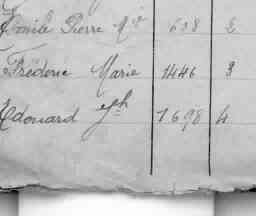 Emile Pierre Mie 638 2
Fréderic Marie 1446 3
Edouard Jh 1698 4